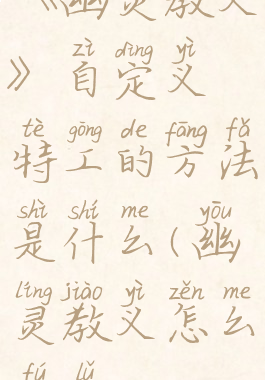 《幽灵教义
zì dìng yì
》自定义
tè gōng de fāng fǎ
特工的方法
shì shí me yōu
是什么(幽
líng jiào yì zěn me
灵教义怎么
fú lǔ